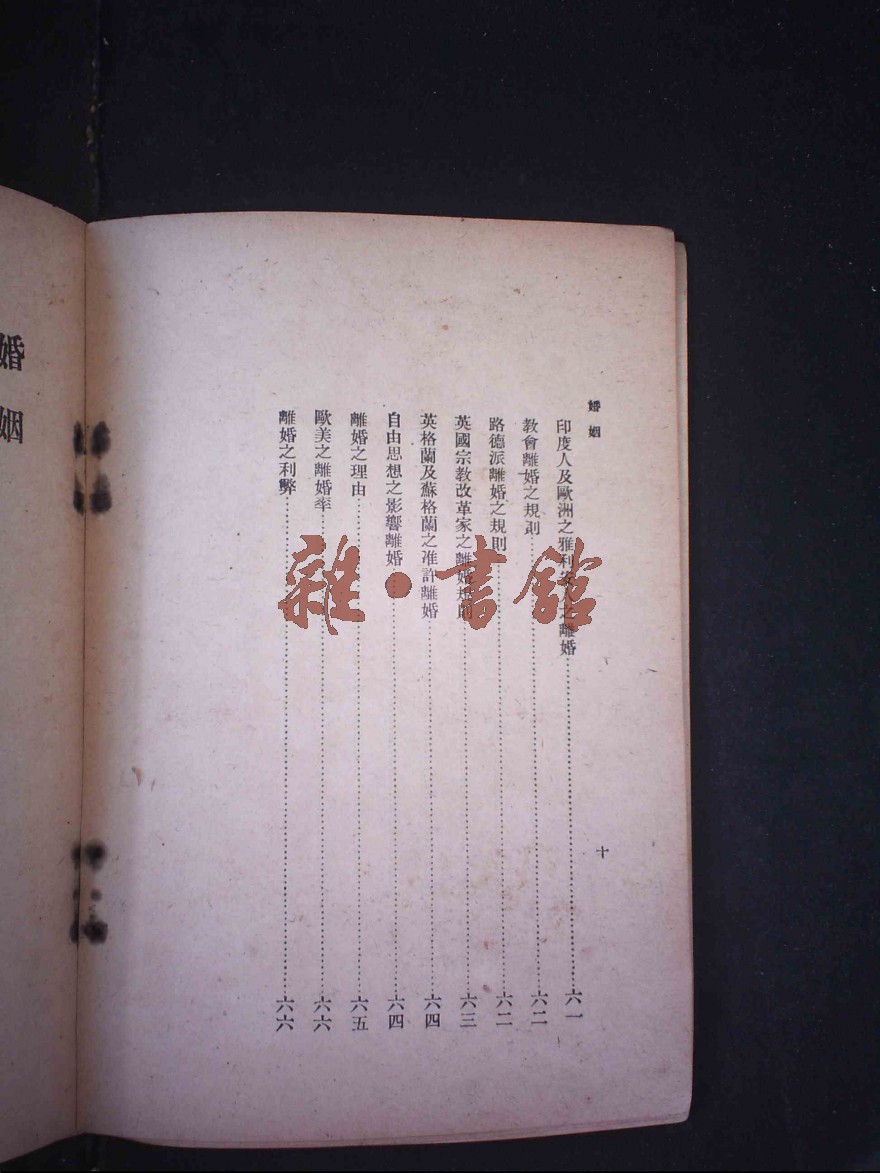 婚姻
印度人及歐洲之雅利安人之離婚……六一
教會離婚之規則……六二
路德派離婚之規則……六二
英國宗教改革家之離婚規則……六三
英格蘭及蘇格蘭之准許離婚……六四
自由思想之影響離婚……六四
離婚之理由……六五
歐美之離婚率……六六
離婚之利弊……六六
十
婚姻
雜·書館